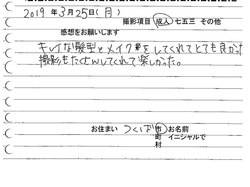 2019 年 3月 25日(月)
撮影項目 成人 七五三 その他
感想をお願いします
キレイな髪型とメイクをしてくれてとても良かった
撮影もたくさんしてくれて楽しかった。
お住まい つくば 市 お名前
町 イニシャルで
村